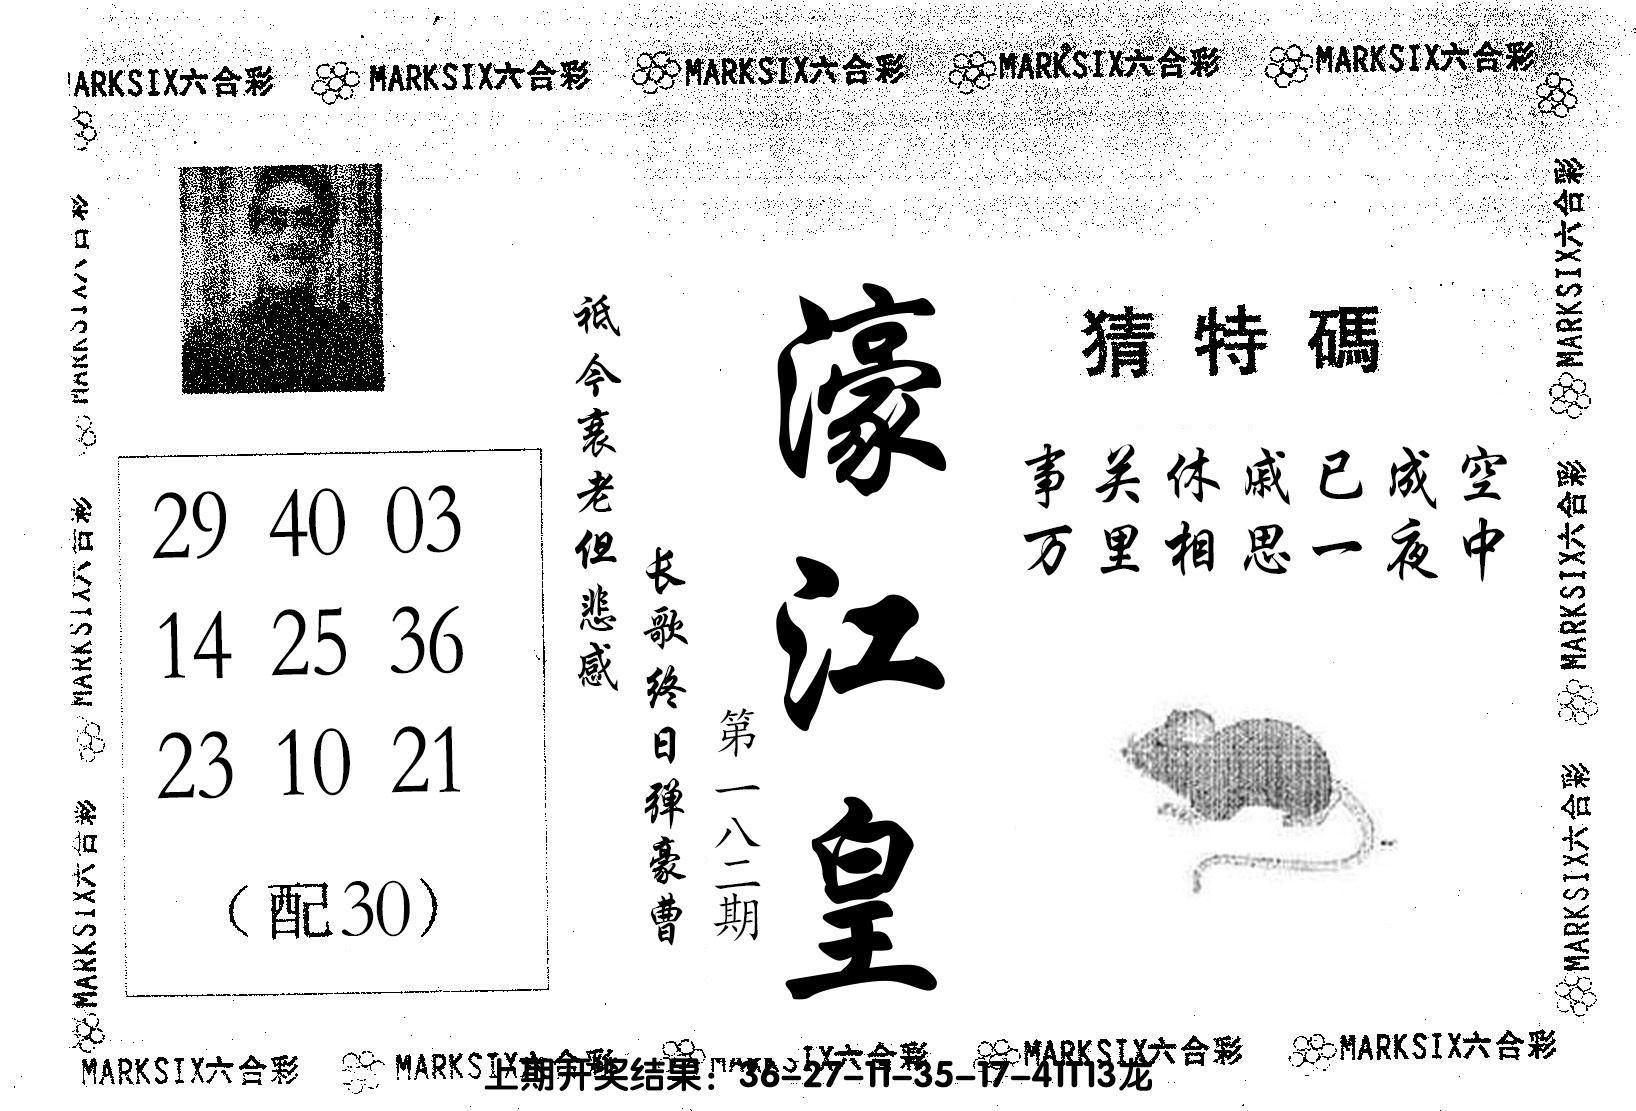 MARKSIX六合彩 MARKSIX六合彩 MARKSIX六合彩 MARKSIX六合彩
猜特碼
事关休戚已成空
万里相思一夜中
濠江皇
第一八二期
长歌终日弹豪曹
祗今衰老但悲感
29 40 03
14 25 36
23 10 21
（配30）
MARKSIX六合彩
MARKSIX六合彩
MARKSIX六合彩
MARKSIX六合彩
MARKSIX六合彩
MARKSIX六合彩 MARKSIX六合彩 MARKSIX六合彩 MARKSIX六合彩
上期开奖结果：36-27-11-35-17-41T13龙